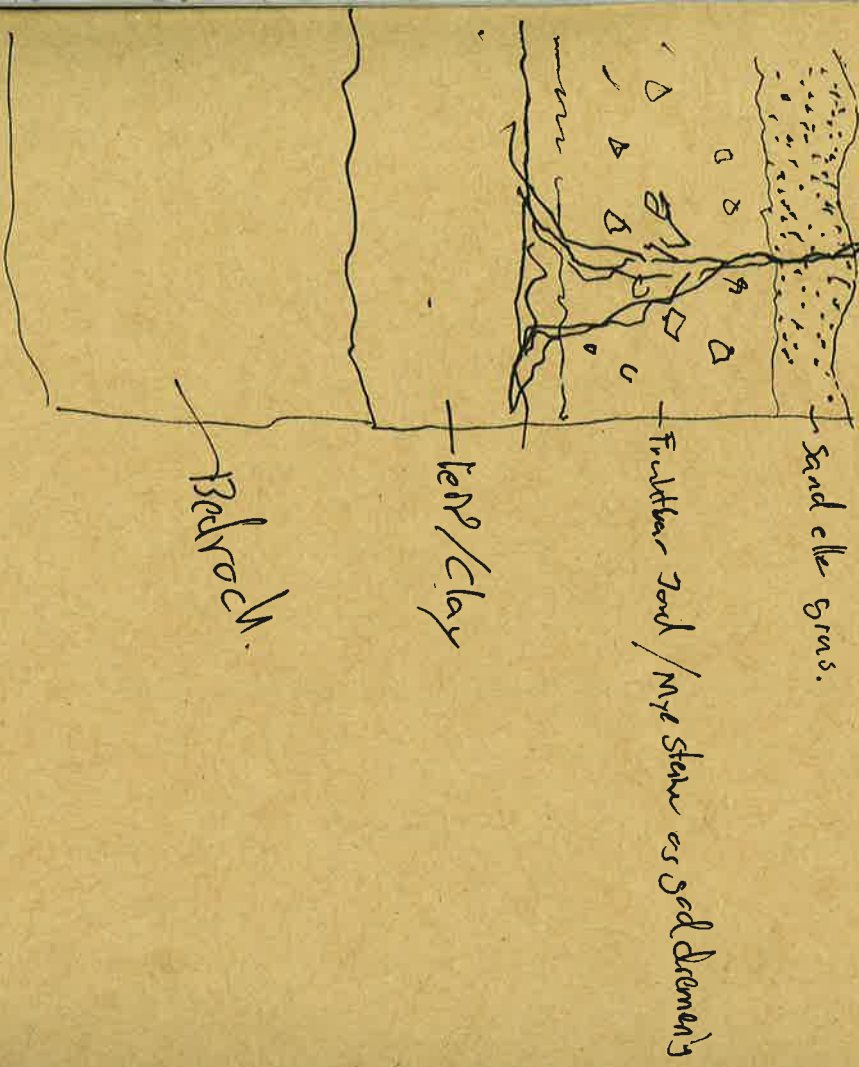 Sand elle grus.
Fruktbar Jord / Mye Steiner og god drenering
leire/Clay
Bedrock.